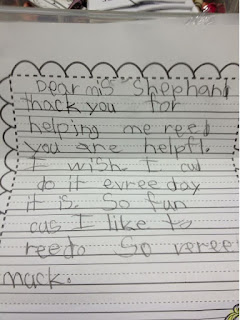 Dear miss Shephand
thackyou for
helping me reed
you are helpfl.
I wish I cud
do it evree day
it is. So fun
cus I like to
reedo So veree
mack.